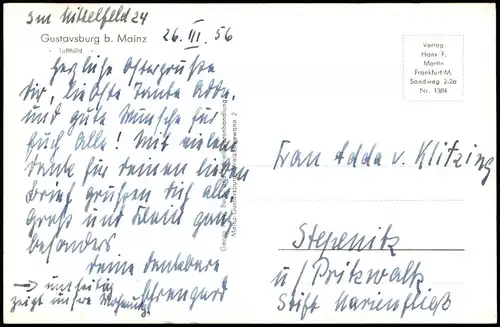 Im Mittelfeld 24
Gustavsburg b. Mainz
Luftbild
26. III. 56
Herzliche Ostergrüße
Dir, liebste Tante Adda,
und gute Wünsche für
Euch Alle! Mit vielem
Dank für Deinen lieben
Brief grüßen Dich alle
Groß und Klein ganz
besonders
Deine dankbare
Ehrengard
→ umseitig
zeigt unsere Wohnung
Verlag
Hans F.
Martin
Frankfurt/M.
Sandweg 2-2a
Nr. 1384
Frau Adda v. Klitzing
Stepenitz
ü/ Pritzwalk
Stift Marienfließ